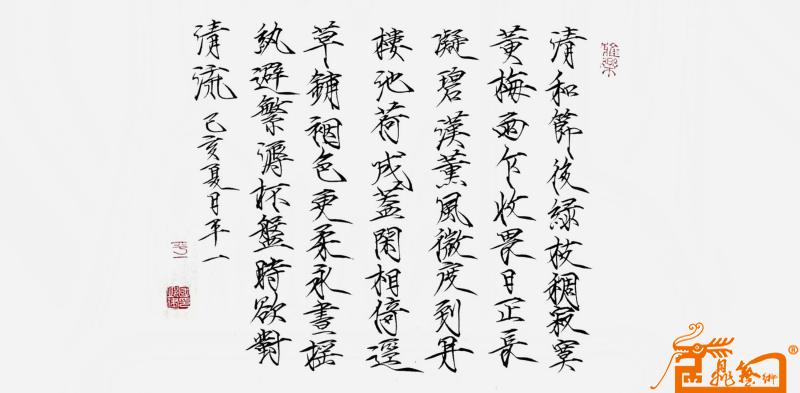 清和節後綠枝稠寂寞
黃梅雨乍收畏日正長
凝碧漢薰風微度到丹
樓池荷成蓋閑相倚逕
草鋪裀色更柔永晝搖
紈避繁溽杯盤時欲對
清流 己亥夏月平一
平一
®